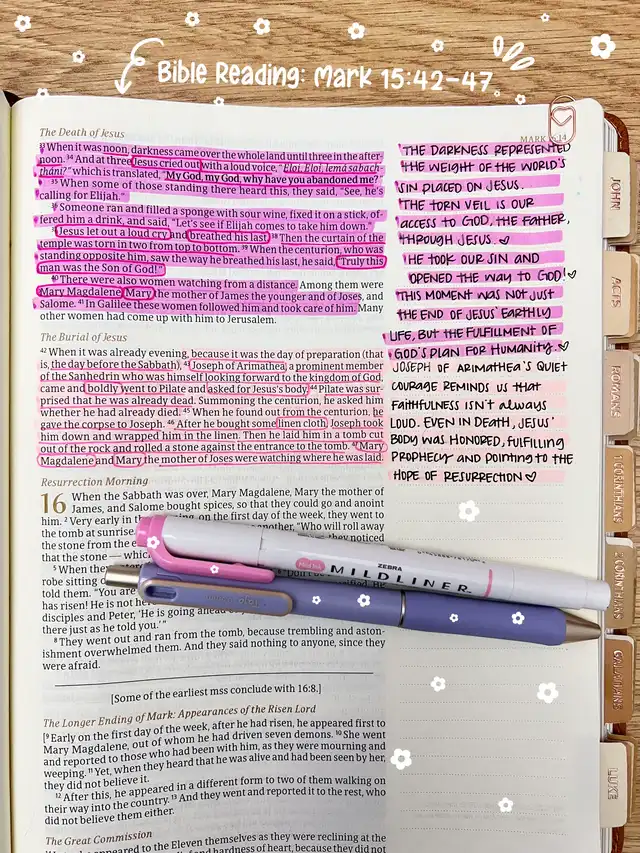 Bible Reading: Mark 15:42-47
The Death of Jesus
MARK 16:14
33 When it was noon, darkness came over the whole land until three in the after-
noon. 34 And at three Jesus cried out with a loud voice, "Eloi, Eloi, lemá sabach-
tháni?" which is translated, "My God, my God, why have you abandoned me?"
35 When some of those standing there heard this, they said, "See, he's
calling for Elijah."
36 Someone ran and filled a sponge with sour wine, fixed it on a stick, of-
fered him a drink, and said, "Let's see if Elijah comes to take him down."
37 Jesus let out a loud cry and breathed his last. 38 Then the curtain of the
temple was torn in two from top to bottom. 39 When the centurion, who was
standing opposite him, saw the way he breathed his last, he said, "Truly this
man was the Son of God!"
40 There were also women watching from a distance. Among them were
Mary Magdalene, Mary the mother of James the younger and of Joses, and
Salome. 41 In Galilee these women followed him and took care of him. Many
other women had come up with him to Jerusalem.
The Burial of Jesus
42 When it was already evening, because it was the day of preparation (that
is, the day before the Sabbath), 43 Joseph of Arimathea, a prominent member
of the Sanhedrin who was himself looking forward to the kingdom of God,
came and boldly went to Pilate and asked for Jesus's body. 44 Pilate was sur-
prised that he was already dead. Summoning the centurion, he asked him
whether he had already died. 45 When he found out from the centurion, he
gave the corpse to Joseph. 46 After he bought some linen cloth, Joseph took
him down and wrapped him in the linen. Then he laid him in a tomb cut
out of the rock and rolled a stone against the entrance to the tomb. 47 Mary
Magdalene and Mary the mother of Joses were watching where he was laid.
Resurrection Morning
16 When the Sabbath was over, Mary Magdalene, Mary the mother of
James, and Salome bought spices, so that they could go and anoint
him. 2 Very early in the morning, on the first day of the week, they went to
the tomb at sunrise. another, "Who will roll away
the stone from the they noticed
that the stone — which
5 When the
robe sitting
told them. "You are
has risen! He is not here
disciples and Peter, 'He is going ahead
there just as he told you.'"
8 They went out and ran from the tomb, because trembling and aston-
ishment overwhelmed them. And they said nothing to anyone, since they
were afraid.
[Some of the earliest mss conclude with 16:8.]
The Longer Ending of Mark: Appearances of the Risen Lord
[9 Early on the first day of the week, after he had risen, he appeared first to
Mary Magdalene, out of whom he had driven seven demons. 10 She went
and reported to those who had been with him, as they were mourning and
weeping. 11 Yet, when they heard that he was alive and had been seen by her,
they did not believe it.
12 After this, he appeared in a different form to two of them walking on
their way into the country. 13 And they went and reported it to the rest, who
did not believe them either.
The Great Commission
appeared to the Eleven themselves as they were reclining at the
and hardness of heart, because they did not
THE DARKNESS REPRESENTED
THE WEIGHT OF THE WORLD'S
SIN PLACED ON JESUS.
THE TORN VEIL IS OUR
ACCESS TO GOD, THE FATHER,
THROUGH JESUS.
HE TOOK OUR SIN AND
OPENED THE WAY TO GOD!
THIS MOMENT WAS NOT JUST
THE END OF JESUS' EARTHLY
LIFE, BUT THE FULFILLMENT OF
GOD'S PLAN FOR HUMANITY.
JOSEPH OF ARIMATHEA'S QUIET
COURAGE REMINDS US THAT
FAITHFULNESS ISN'T ALWAYS
LOUD. EVEN IN DEATH, JESUS'
BODY WAS HONORED, FULFILLING
PROPHECY AND POINTING TO THE
HOPE OF RESURRECTION
Mild Ink
ZEBRA
MILDLINER
JOHN
ACTS
ROMANS
1 CORINTHIANS
2 CORINTHIANS
GALATIANS
LUKE